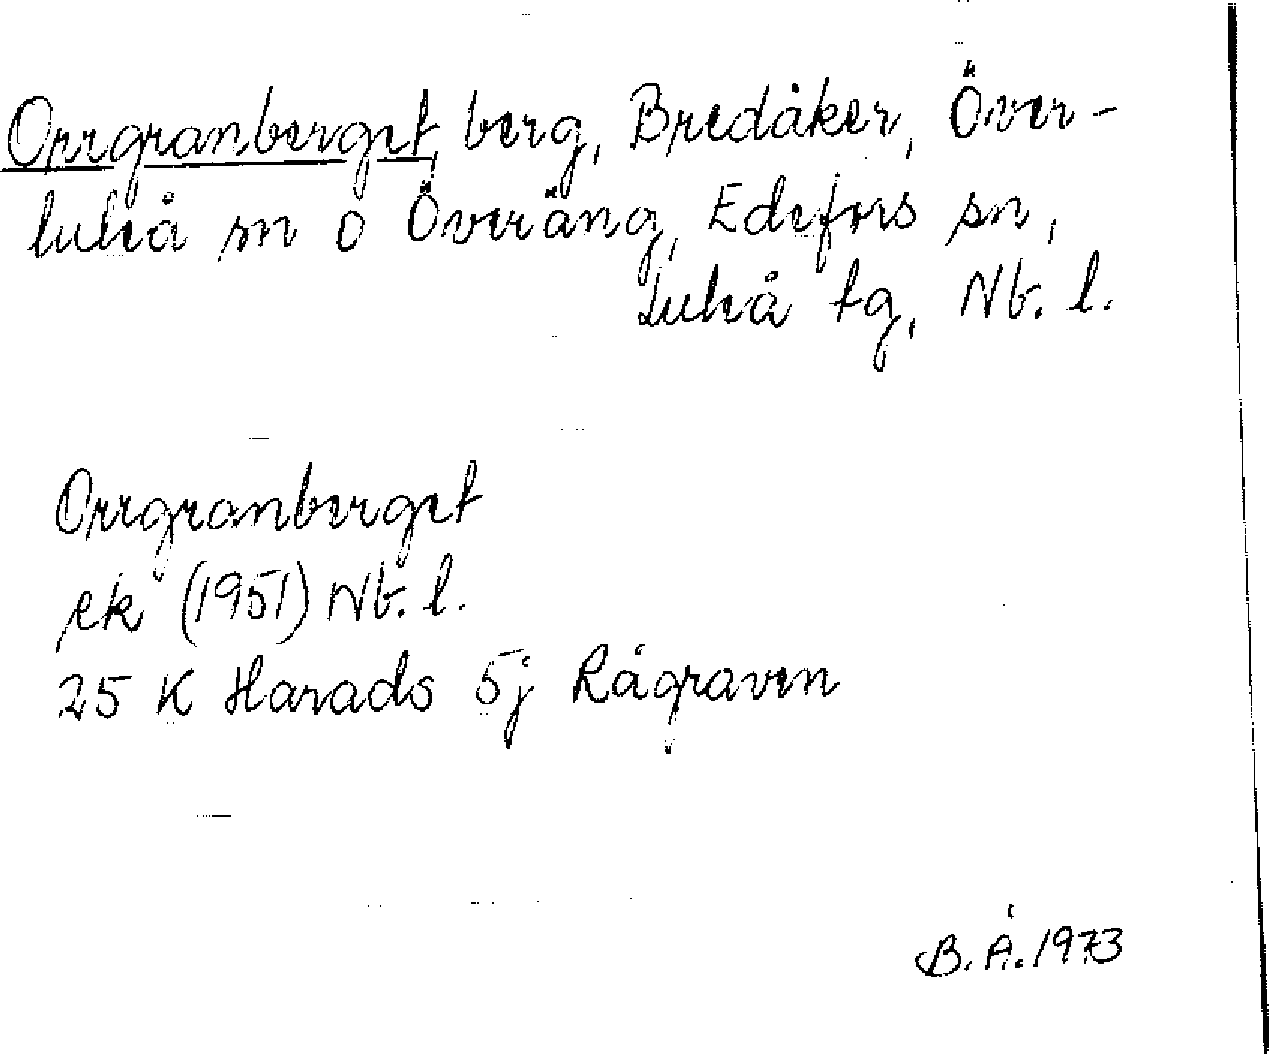 Orrgranberget, berg, Bredåker, Över-
luleå sn o Överäng, Edefors sn,
Luleå tg, Nb. l.
Orrgranberget
ek (1951) Nb. l.
25 K Harads 5j Rågraven
B. Å. 1973